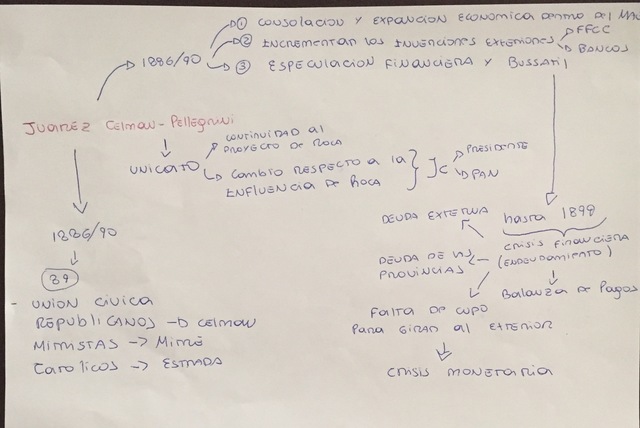 ① CONSOLACION Y EXPANCION ECONOMICA DENTRO DEL
1886/90
② INCREMENTAR LOS INVENCIONES EXTERIORES
FFCC
BANCOS
③ ESPECULACION FINANCIERA Y
JUAREZ CELMAN - PELLEGRINI
UNICATO
CONTINUIDAD AL
PROYECTO DE ROCA
CAMBIO RESPECTO A LA
INFLUENCIA DE ROCA
JC
PRESIDENTE
PAN
1886/90
89
- UNION CIVICA
REPUBLICANOS → CELMAN
MITRISTAS → MITRE
CATOLICOS → ESTRADA
hasta 1898
CRISIS FINANCIERA
(ENDEUDAMIENTO)
DEUDA EXTERNA
DEUDA DE LAS
PROVINCIAS
Balanza de Pagos
FALTA DE CUPO
PARA GIRAR AL EXTERIOR
CRISIS MONETARIA